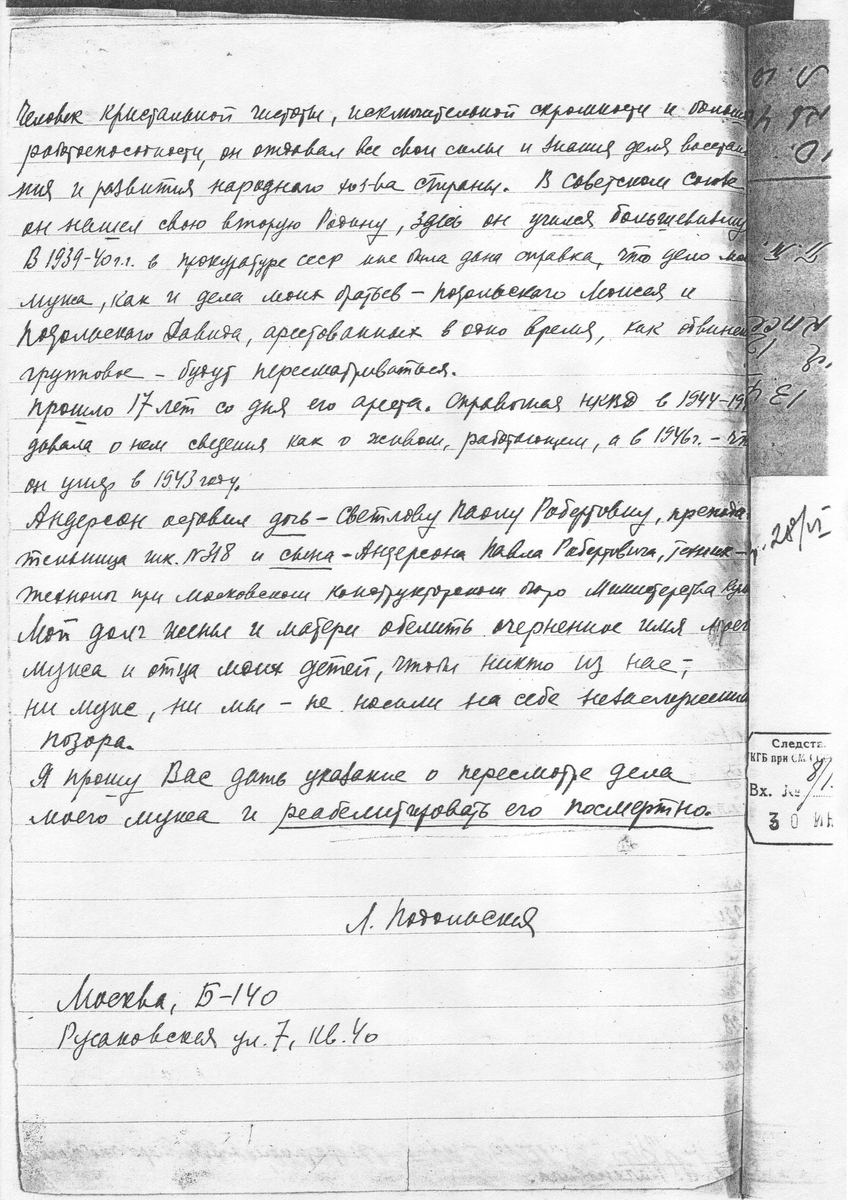 Человек кристальной чистоты, исключительной скромности и больш
работоспособности, он отдавал все свои силы и знания делу восстан
ния и развития народного хоз-ва страны. В Советском Союзе
он нашел свою вторую Родину, здесь он учился большевизму
В 1939-40 г.г. в прокуратуре СССР мне была дана справка, что дело мое
мужа, как и дела моих братьев – Подольского Моисея и
Подольского Давида, арестованных в одно время, как обвинен
групповое – будут пересматриваться.
Прошло 17 лет со дня его ареста. Справочная НКВД в 1944-19
давала о нем сведения как о живом, работающем, а в 1946 г. – что
он умер в 1943 году.
Андерсон оставил дочь – Светлову Паолу Робертовну, препода
тельница шк. № 318 и сына – Андерсона Павла Робертовича, техник-
технолог при московском конструкторском бюро Министерства
Мой долг жены и матери обелить очерненное имя
мужа и отца моих детей, чтобы никто из нас –
ни муж, ни мы – не носили на себе незаслуженн
позора.
Я прошу Вас дать указание о пересмотре дела
моего мужа и реабелитировать его посмертно.
Л. Подольская
Москва, Б-140
Русаковская ул. 7, кв. 40
28/VI
Следств.
КГБ при СМ
Вх. №
30 ИЮ